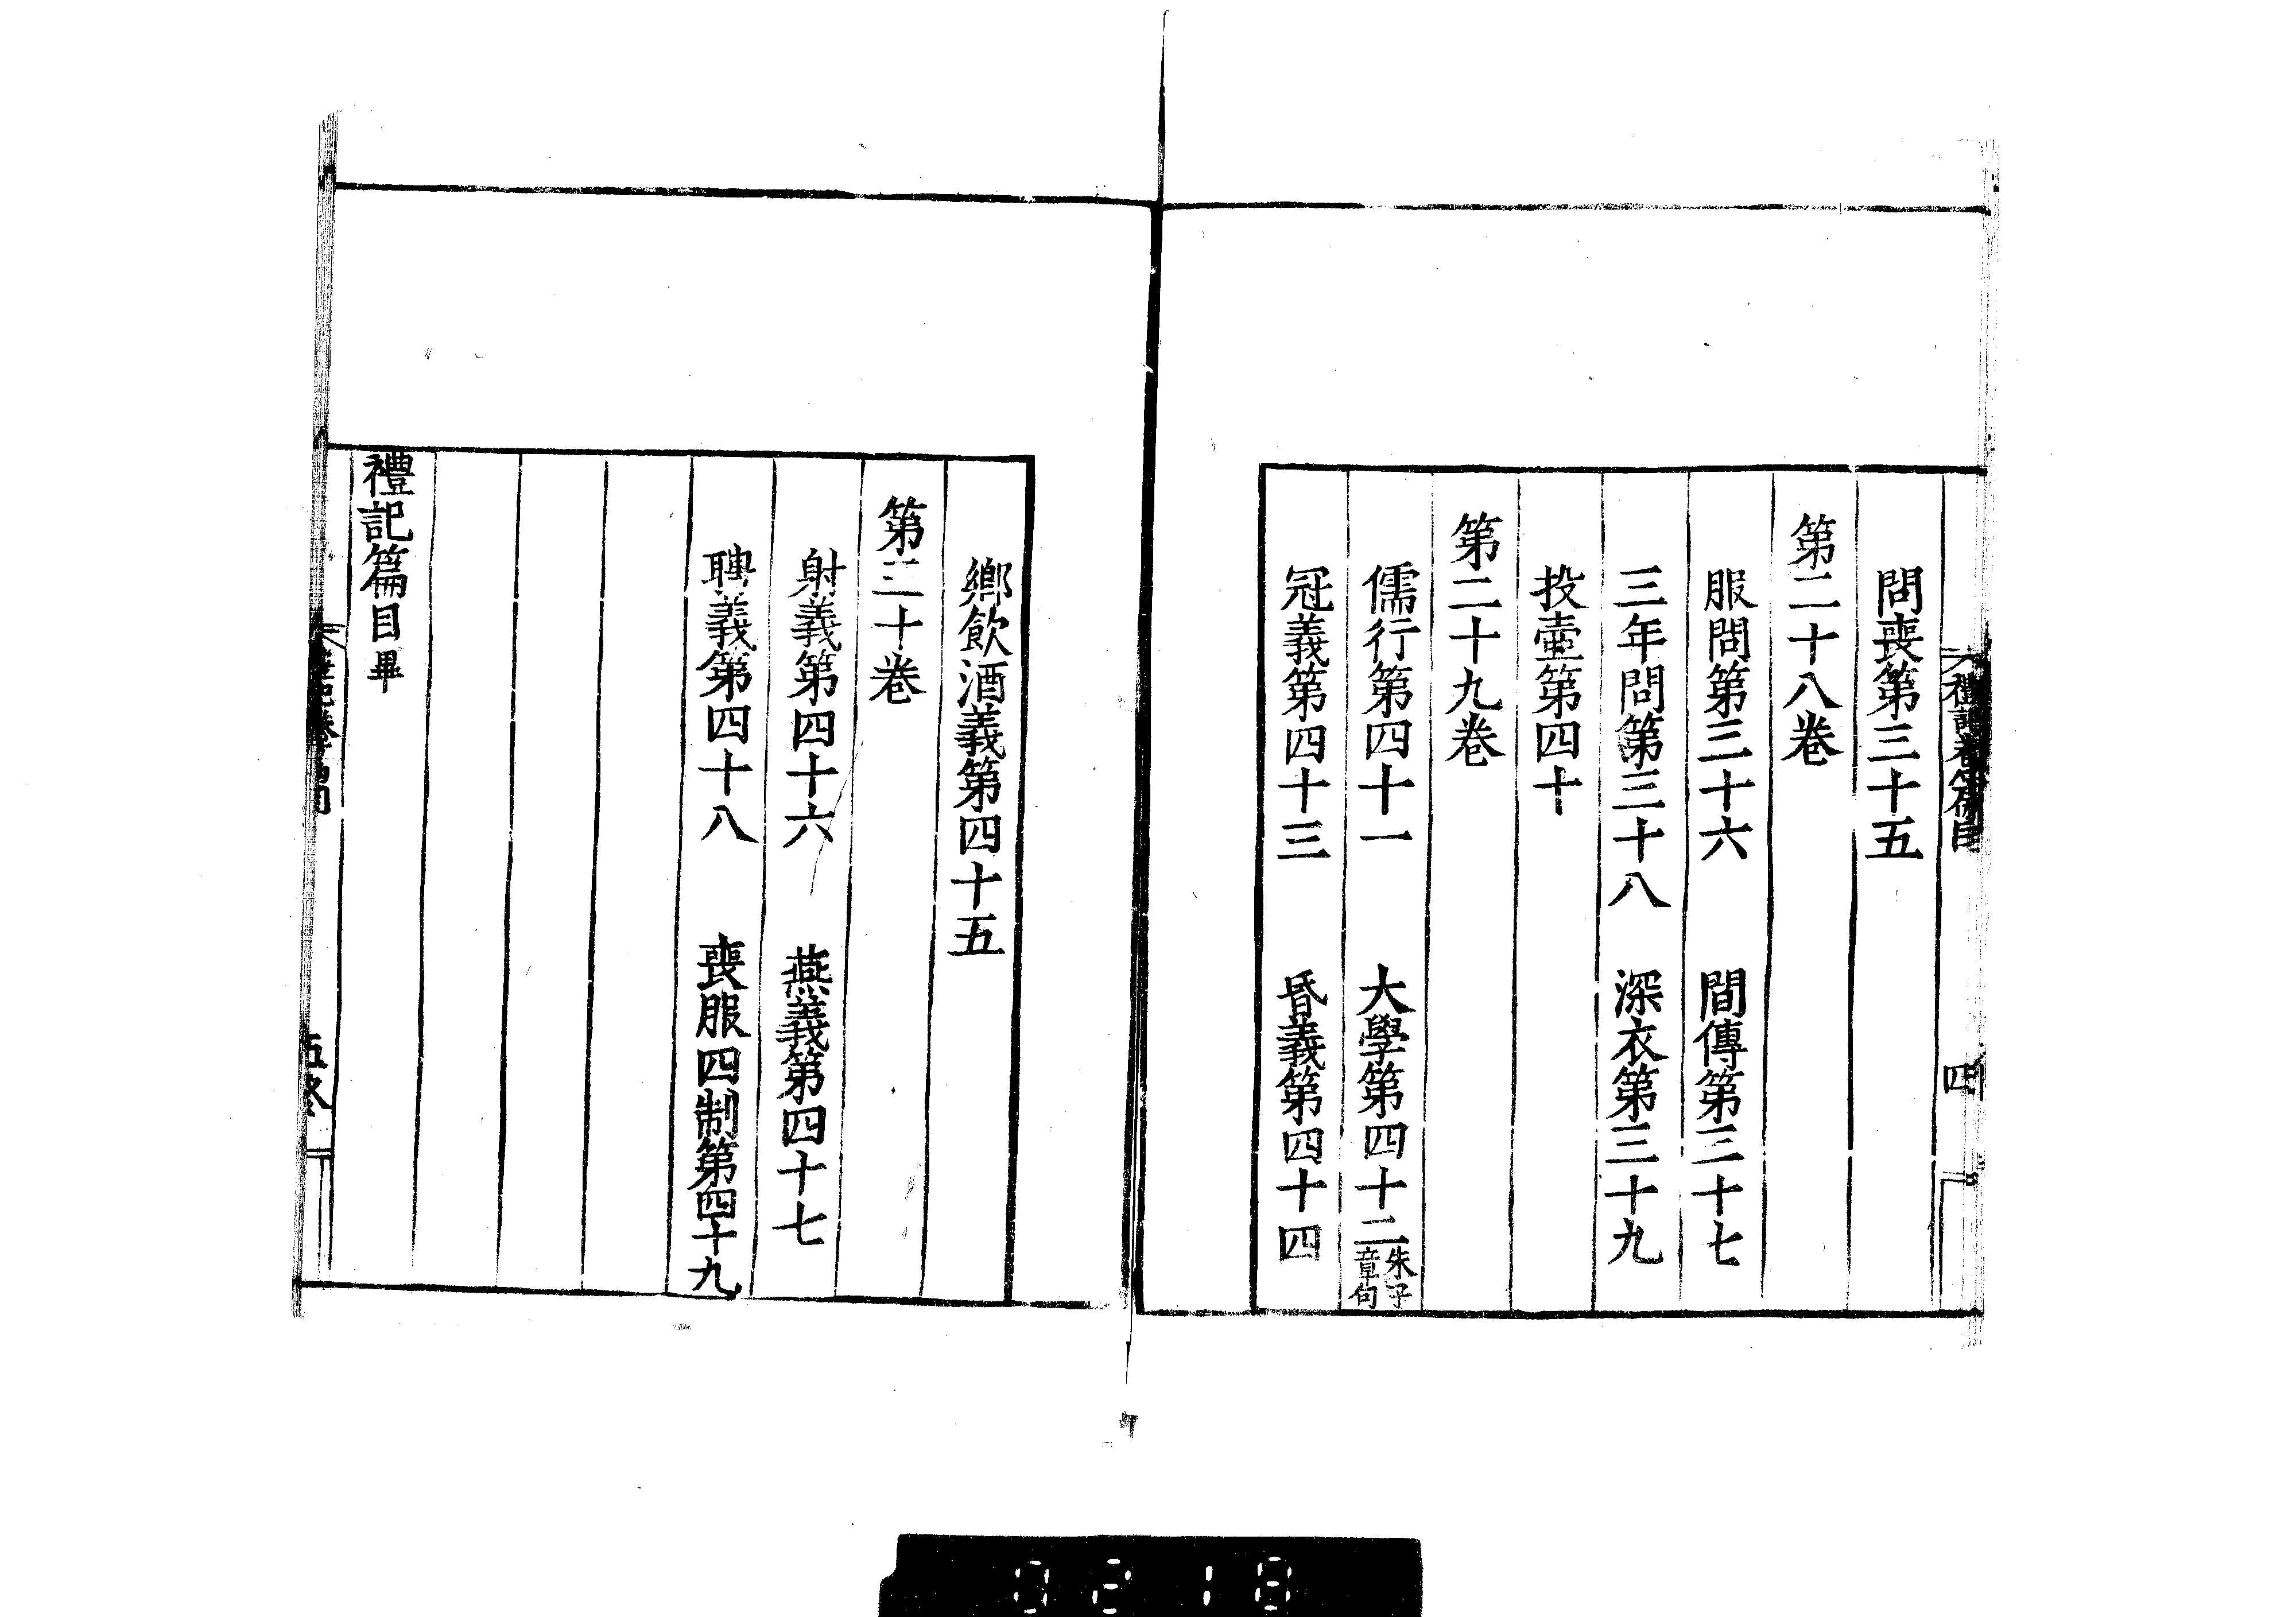 問喪第三十五
第二十八卷
服問第三十六　間傳第三十七
三年問第三十八　深衣第三十九
投壺第四十
第二十九卷
儒行第四十一　大學第四十二朱子章句
冠義第四十三　昏義第四十四
四
鄉飲酒義第四十五
第三十卷
射義第四十六　燕義第四十七
聘義第四十八　喪服四制第四十九
禮記篇目畢
五終
0218